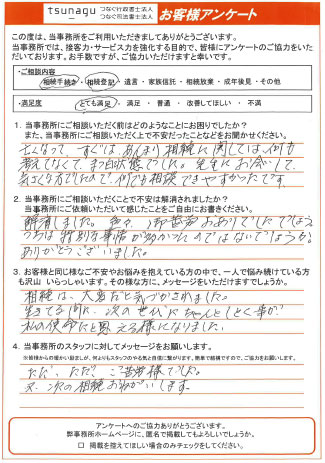 tsunagu つなぐ行政書士法人
つなぐ司法書士法人 お客様アンケート
この度は、当事務所をご利用いただきましてありがとうございます。
当事務所では、接客力・サービス力を強化する目的で、皆様にアンケートのご協力をいた
だいております。お手数ですが、ご協力いただけますと幸いです。
・ご相談内容
相続手続き・相続登記・遺言・家族信託・相続放棄・成年後見・その他
・満足度 とても満足・満足・普通・改善してほしい・不満
1. 当事務所にご相談いただく前はどのようなことにお困りでしたか?
また、当事務所にご相談いただく上で不安だったことなどをお聞かせください。
亡くなって、すぐはあんまり相続に関しては何も
考えてなくて、まっ白状態でした。先生にお会いして、
気さくな方でしたので何でも相談できやすかったです。
2. 当事務所にご相談いただくことで不安は解消されましたか?
当事務所にご依頼いただいて感じたことをご自由にお書きください。
解消しました。色々、ご苦労おありでしたでしょう
うちは特別な事情が多かったのではないでしょうか。
ありがとうございました。
3. お客様と同じ様なご不安やお悩みを抱えている方の中で、一人で悩み続けている方
も沢山いらっしゃいます。その様な方に、メッセージをいただけますでしょうか。
相続は、大変だと気づかされました。
生きてる間に、次のせだいにちゃんとしとく事が、
私の使命だと思える様になりました。
4. 当事務所のスタッフに対してメッセージをお願いします。
※皆様からの暖かい励ましが、何よりもスタッフのやる気と自信に繋がります。簡単で結構ですので、ご協力をお願いします。
ただ、ただ、ご苦労様でした。
又、次の相続おねがいします。
アンケートへのご協力ありがとうございます。
弊事務所ホームページに、匿名で掲載してもよろしいでしょうか。
□ 掲載を控えてほしい場合のみチェックをしてください。